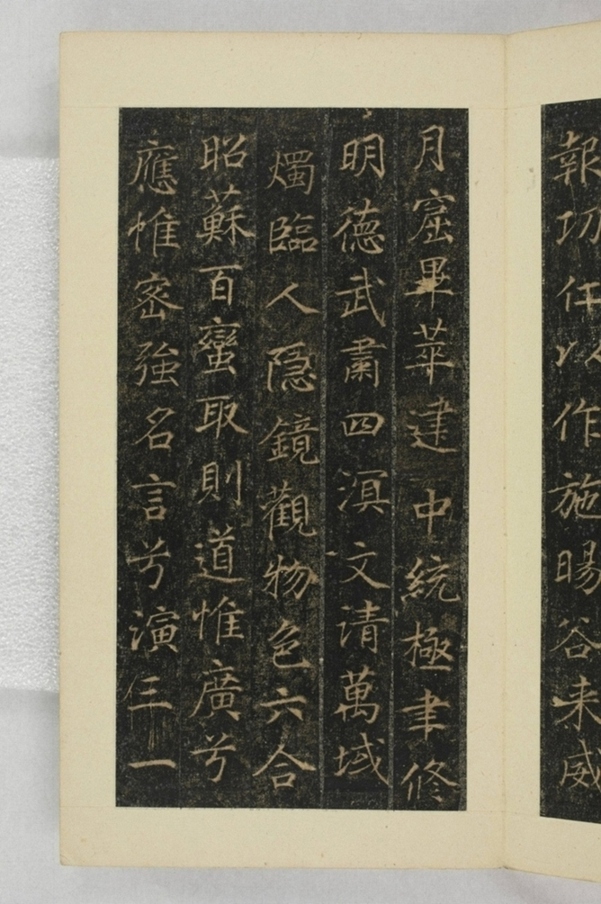 報功仁以作施暘谷来威
月窟畢萃建中統極聿修
明德武肅四溟文清萬域
燭臨人隐鏡觀物色六合
昭蘇百蠻取則道惟廣兮
應惟密強名言兮演仨一